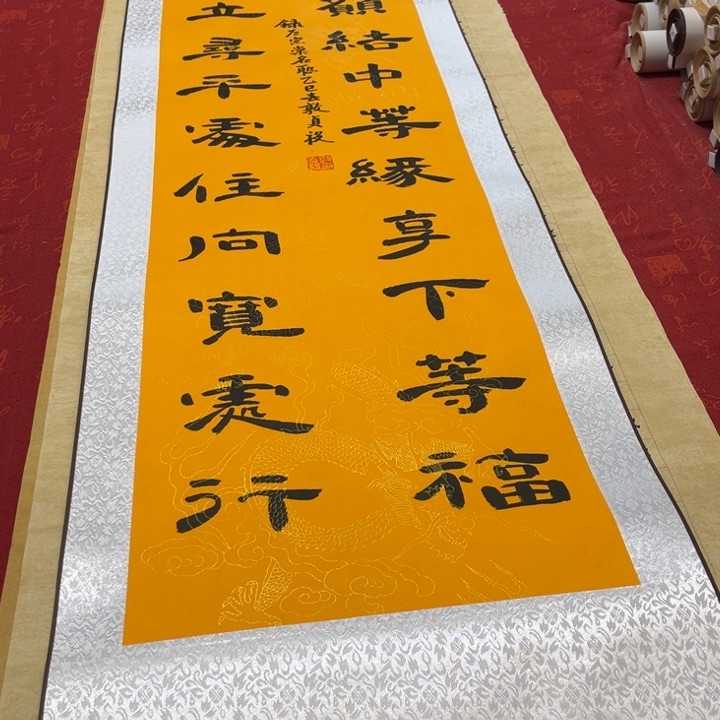 願結中等緣享下等福
立尋平處住向寬處行
錄左宗棠名聯乙巳